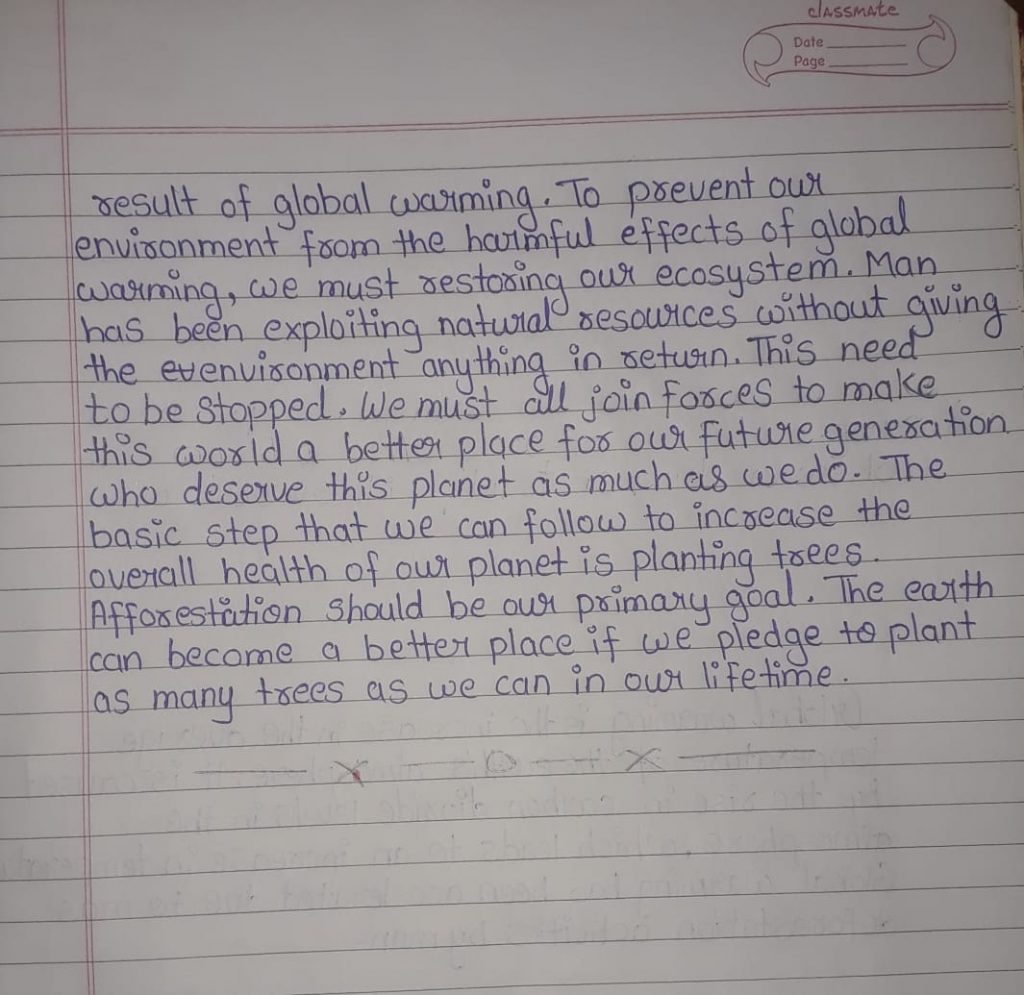 classmate
Date
Page
result of global warming. To prevent our
environment from the harmful effects of global
warming, we must restoring our ecosystem. Man
has been exploiting natural resources without giving
the evenvironment anything in return. This need
to be stopped. We must all join forces to make
this world a better place for our future generation
who deserve this planet as much as we do. The
basic step that we can follow to increase the
overall health of our planet is planting trees.
Afforestation should be our primary goal. The earth
can become a better place if we pledge to plant
as many trees as we can in our lifetime.